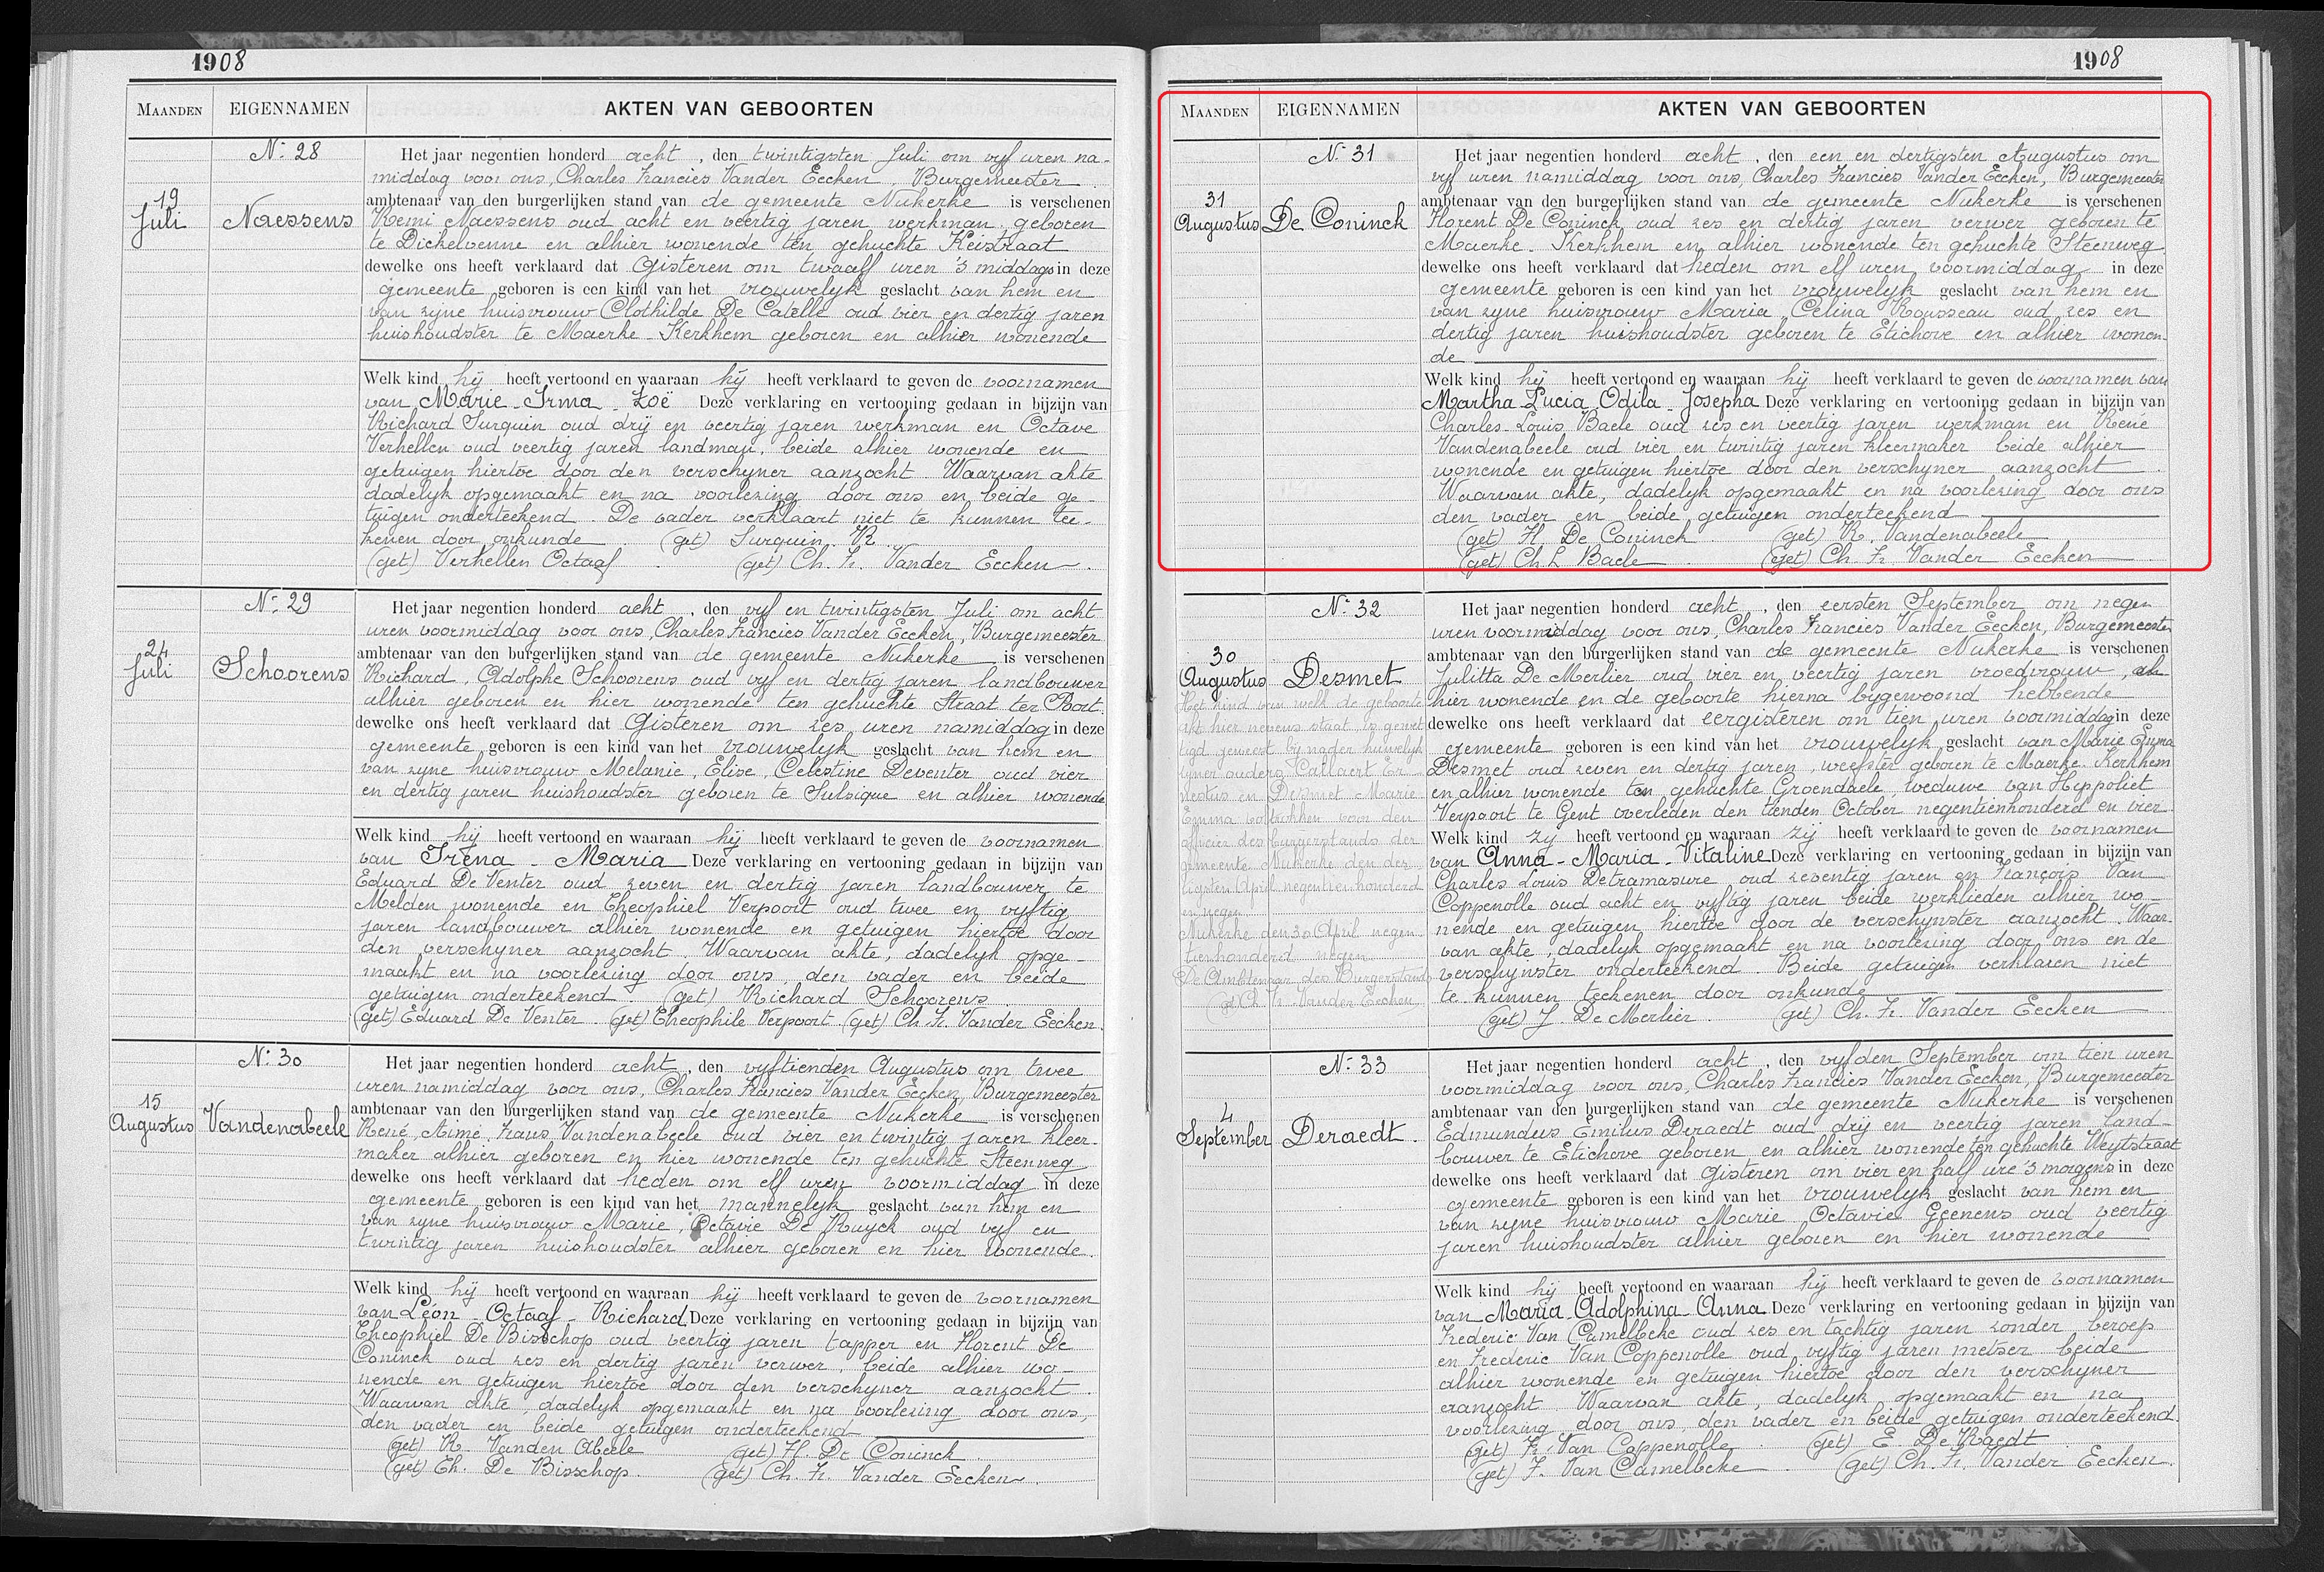 1908
MAANDEN EIGENNAMEN AKTEN VAN GEBOORTEN
N: 28
19
Juli
Naessens
Het jaar negentien honderd acht, den twintigsten Juli om vyf uren na-
middag voor ons, Charles Francies Vander Eecken, Burgemeester
ambtenaar van den burgerlijken stand van de gemeente Nukerke is verschenen
Remi Naessens oud acht en veertig jaren werkman geboren
te Dickelvenne en alhier wonende ten gehuchte Keistraat
dewelke ons heeft verklaard dat Gisteren om twaalf uren 's middags in deze
gemeente geboren is een kind van het vrouwelyk geslacht van hem en
van zyne huisvrouw Clothilde De Catelle oud vier en dertig jaren
huishoudster te Maerke-Kerkhem geboren en alhier wonende
Welk kind hij heeft vertoond en waaraan hij heeft verklaard te geven de voornamen
van Marie-Irma-Zoë Deze verklaring en vertooning gedaan in bijzijn van
Richard Surquin oud drij en veertig jaren werkman en Octave
Verhellen oud veertig jaren landman, beide alhier wonende en
getuigen hiertoe door den verschyner aanzocht. Waarvan akte
dadelyk opgemaakt en na voorlezing door ons en beide ge-
tuigen onderteekend. De vader verklaart niet te kunnen tee-
kenen door onkunde (get) Surquin. R
(get) Verhellen Octaaf (get) Ch. Fr. Vander Eecken.
N: 29
24
Juli
Schoorens
Het jaar negentien honderd acht, den vyf en twintigsten Juli om acht
uren voormiddag voor ons, Charles Francies Vander Eecken, Burgemeester
ambtenaar van den burgerlijken stand van de gemeente Nukerke is verschenen
Richard, Adolphe Schoorens oud vyf en dertig jaren landbouwer
alhier geboren en hier wonende ten gehuchte Straat ter Poort.
dewelke ons heeft verklaard dat Gisteren om zes uren namiddag in deze
gemeente geboren is een kind van het vrouwelyk geslacht van hem en
van zyne huisvrouw Melanie, Elise, Celestine Deventer oud vier
en dertig jaren huishoudster geboren te Sulsique en alhier wonende
Welk kind hij heeft vertoond en waaraan hij heeft verklaard te geven de voornamen
van Irena - Maria Deze verklaring en vertooning gedaan in bijzijn van
Eduard De Venter oud zeven en dertig jaren landbouwer te
Melden wonende en Theophiel Verpoort oud twee en vyftig
jaren landbouwer alhier wonende en getuigen hiertoe door
den verschyner aanzocht. Waarvan akte, dadelyk opge-
maakt en na voorlezing door ons den vader en beide
getuigen onderteekend. (get) Richard Schoorens
(get) Eduard De Venter (get) Theophile Verpoort (get) Ch. Fr. Vander Eecken.
N: 30
15
Augustus
Vandenabeele
Het jaar negentien honderd acht, den vyftienden Augustus om twee
uren namiddag voor ons, Charles Francies Vander Eecken, Burgemeester
ambtenaar van den burgerlijken stand van de gemeente Nukerke is verschenen
René, Aimé, Frans Vandenabeele oud vier en twintig jaren kleer-
maker alhier geboren en hier wonende ten gehuchte Steenweg
dewelke ons heeft verklaard dat heden om elf uren voormiddag in deze
gemeente geboren is een kind van het mannelyk geslacht van hem en
van zyne huisvrouw Marie, Octavie De Ruyck oud vyf en
twintig jaren huishoudster alhier geboren en hier wonende.
Welk kind hij heeft vertoond en waaraan hij heeft verklaard te geven de voornamen
van Léon - Octaaf - Richard Deze verklaring en vertooning gedaan in bijzijn van
Theophiel De Bisschop oud veertig jaren tapper en Florent De
Coninck oud zes en dertig jaren verwer, beide alhier wo-
nende en getuigen hiertoe door den verschyner aanzocht.
Waarvan akte, dadelyk opgemaakt en na voorlezing door ons,
den vader en beide getuigen onderteekend
(get) R. Vanden Abeele (get) Fl. De Coninck.
(get) Th. De Bisschop. (get) Ch. Fr. Vander Eecken.
1908
MAANDEN EIGENNAMEN AKTEN VAN GEBOORTEN
N: 31
31
Augustus
De Coninck
Het jaar negentien honderd acht, den een en dertigsten Augustus om
vyf uren namiddag voor ons, Charles Francies Vander Eecken, Burgemeester
ambtenaar van den burgerlijken stand van de gemeente Nukerke is verschenen
Florent De Coninck oud zes en dertig jaren verwer geboren te
Maerke-Kerkhem en alhier wonende ten gehuchte Steenweg
dewelke ons heeft verklaard dat heden om elf uren voormiddag in deze
gemeente geboren is een kind van het vrouwelyk geslacht van hem en
van zyne huisvrouw Maria Celina Rousseau oud zes en
dertig jaren huishoudster geboren te Etichove en alhier wonen-
de
Welk kind hij heeft vertoond en waaraan hij heeft verklaard te geven de voornamen van
Martha-Lucia Odila-Josepha Deze verklaring en vertooning gedaan in bijzijn van
Charles-Louis Baele oud zes en veertig jaren werkman en René
Vandenabeele oud vier en twintig jaren kleermaker beide alhier
wonende en getuigen hiertoe door den verschyner aanzocht.
Waarvan akte, dadelyk opgemaakt en na voorlezing door ons
den vader en beide getuigen onderteekend
(get) Fl. De Coninck. (get) R. Vandenabeele
(get) Ch L Baele. (get) Ch. Fr. Vander Eecken
N: 32
30
Augustus
Desmet
Het kind van welk de geboorte
akt hier nevens staat, is gewet
tigd geweest bij nader huwelyk
zyner ouders Callaert Er-
nestus en Desmet Marie
Emma voltrokken voor den
officier des burgerstands der
gemeente Nukerke den der-
tigsten April negentienhonderd
en negen
Nukerke den 30 April negen-
tienhonderd negen.
De Ambtenaar des Burgerstands
(get) Ch. Fr. Vander Eecken
Het jaar negentien honderd acht, den eersten September om negen
uren voormiddag voor ons, Charles Francies Vander Eecken, Burgemeester
ambtenaar van den burgerlijken stand van de gemeente Nukerke is verschenen
Julitta De Merlier oud vier en veertig jaren vroedvrouw, al-
hier wonende en de geboorte hierna bygewoond hebbende
dewelke ons heeft verklaard dat eergisteren om tien uren voormiddag in deze
gemeente geboren is een kind van het vrouwelyk geslacht van Marie Emma
Desmet oud zeven en dertig jaren, weefster geboren te Maerke-Kerkhem
en alhier wonende ten gehuchte Groendaele, weduwe van Hyppoliet
Verpoort te Gent overleden den tienden October negentienhonderd en vier
Welk kind zy heeft vertoond en waaraan zij heeft verklaard te geven de voornamen
van Anna - Maria - Vitaline Deze verklaring en vertooning gedaan in bijzijn van
Charles Louis Detramasure oud zeventig jaren en François Van
Coppenolle oud acht en vyftig jaren beide werklieden alhier wo-
nende en getuigen hiertoe door de verschynster aanzocht. Waar-
van akte, dadelyk opgemaakt en na voorlezing door ons en de
verschynster onderteekend. Beide getuigen verklaren niet
te kunnen teekenen door onkunde
(get) J. De Merlier. (get) Ch. Fr. Vander Eecken
N: 33
4
September
Deraedt.
Het jaar negentien honderd acht, den vyfden September om tien uren
voormiddag voor ons, Charles Francies Vander Eecken, Burgemeester
ambtenaar van den burgerlijken stand van de gemeente Nukerke is verschenen
Edmundus Emilus Deraedt oud drij en veertig jaren land-
bouwer te Etichove geboren en alhier wonende ten gehuchte Weytstraat
dewelke ons heeft verklaard dat Gisteren om vier en half ure 's morgens in deze
gemeente geboren is een kind van het vrouwelyk geslacht van hem en
van zyne huisvrouw Marie Octavie Geenens oud veertig
jaren huishoudster alhier geboren en hier wonende
Welk kind hij heeft vertoond en waaraan hij heeft verklaard te geven de voornamen
van Maria-Adolphina-Anna Deze verklaring en vertooning gedaan in bijzijn van
Frederic Van Camelbeke oud zes en tachtig jaren zonder beroep
en Frederic Van Coppenolle oud vyftig jaren metser beide
alhier wonende en getuigen hiertoe door den verschyner
aanzocht. Waarvan akte, dadelyk opgemaakt en na
voorlezing door ons, den vader en beide getuigen onderteekend.
(get) Fr. Van Coppenolle. (get) E. De Raedt
(get) F. Van Camelbeke. (get) Ch. Fr. Vander Eecken.